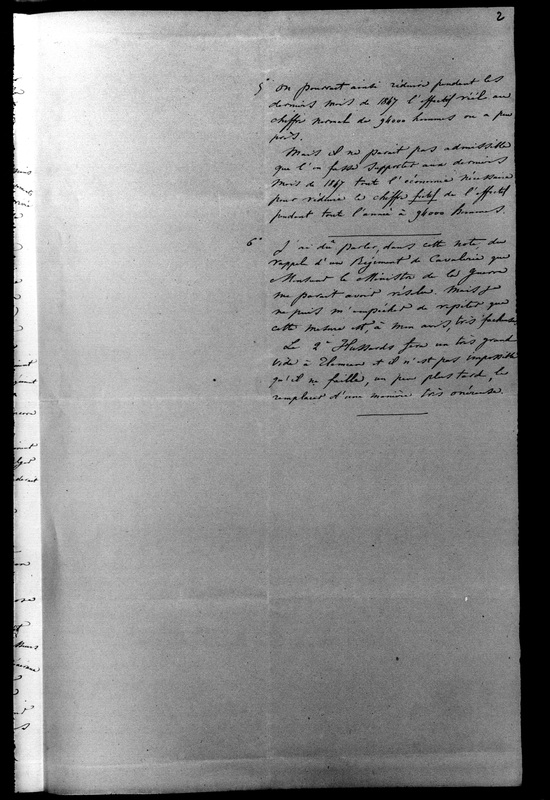 2
5° On pourrait ainsi réduire pendant les
derniers mois de 1867 l'effectif réel au
chiffre normal de 94000 hommes ou a peu
près.
Mais il ne parait pas admissible
que l'on fasse supporter aux derniers
mois de 1867 tout l'économie nécessaire
pour réduire le chiffre fictif de l'effectif
pendant tout l'année à 94000 hommes.
6° J'ai dû parler, dans cette note, du
rappel d'un Régiment de Cavalerie que
Monsieur le Ministre de la Guerre
me parait avoir résolu. Mais je
ne puis m'empêcher de repéter que
cette mesure est, à mon avis, très facheuse
Le 2e Hussards fera un très grand
vide à Tlemcen et il n'est pas impossible
qu'il ne faille, un peu plus tard, le
remplacer d'une manière très onéreuse.